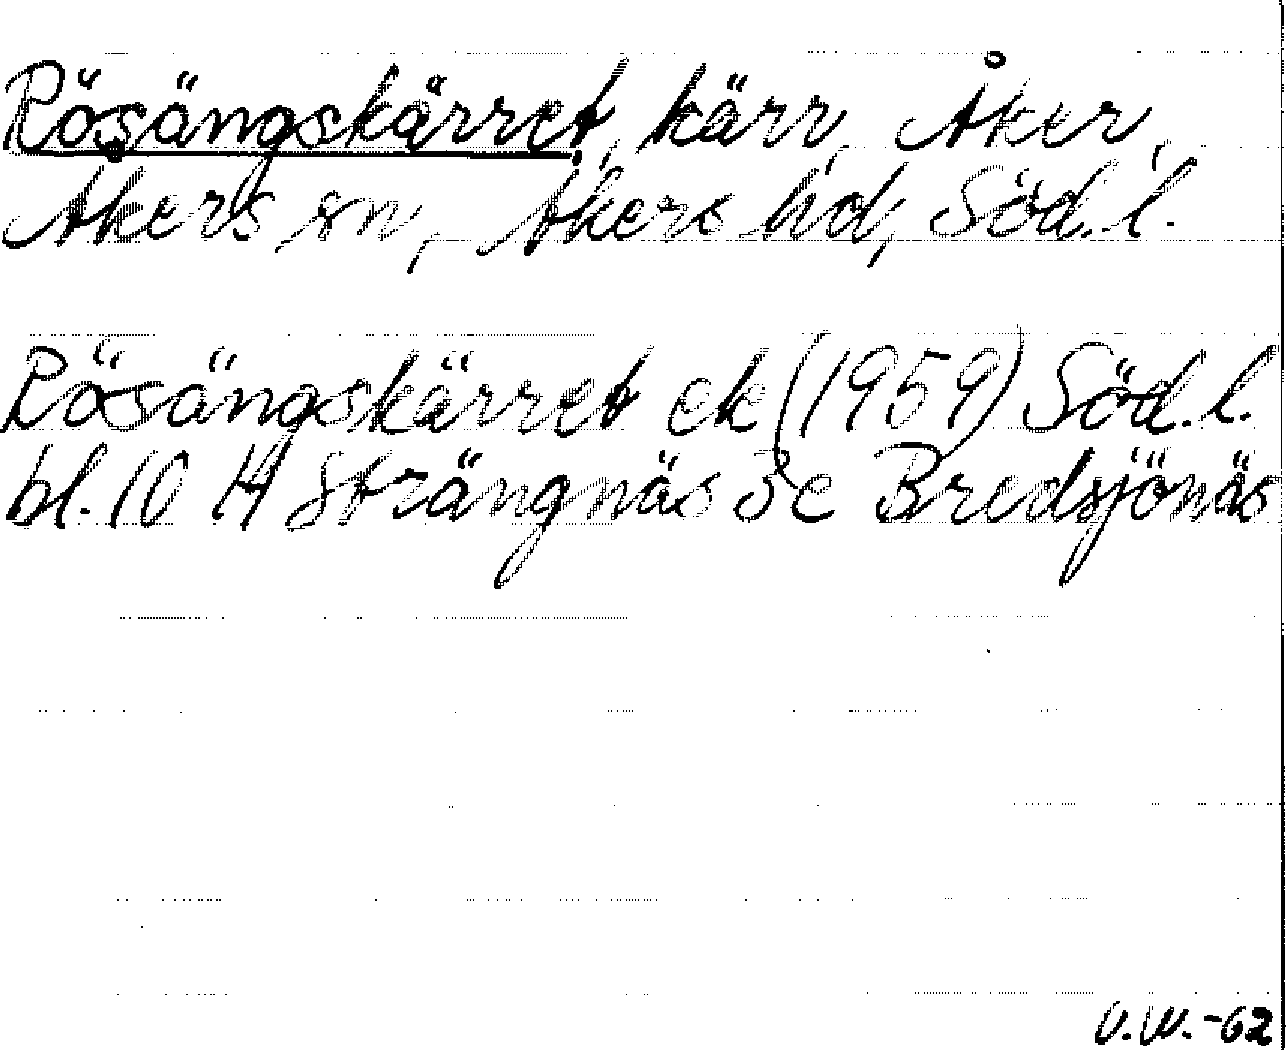 Rösängskärret, kärr, Åker,
Åkers sn, Åkers hd, Söd. l.
Rösängskärret ek (1959) Söd. l.
bl. 10 H Strängnäs 3c Bredsjönäs
U.W. -62